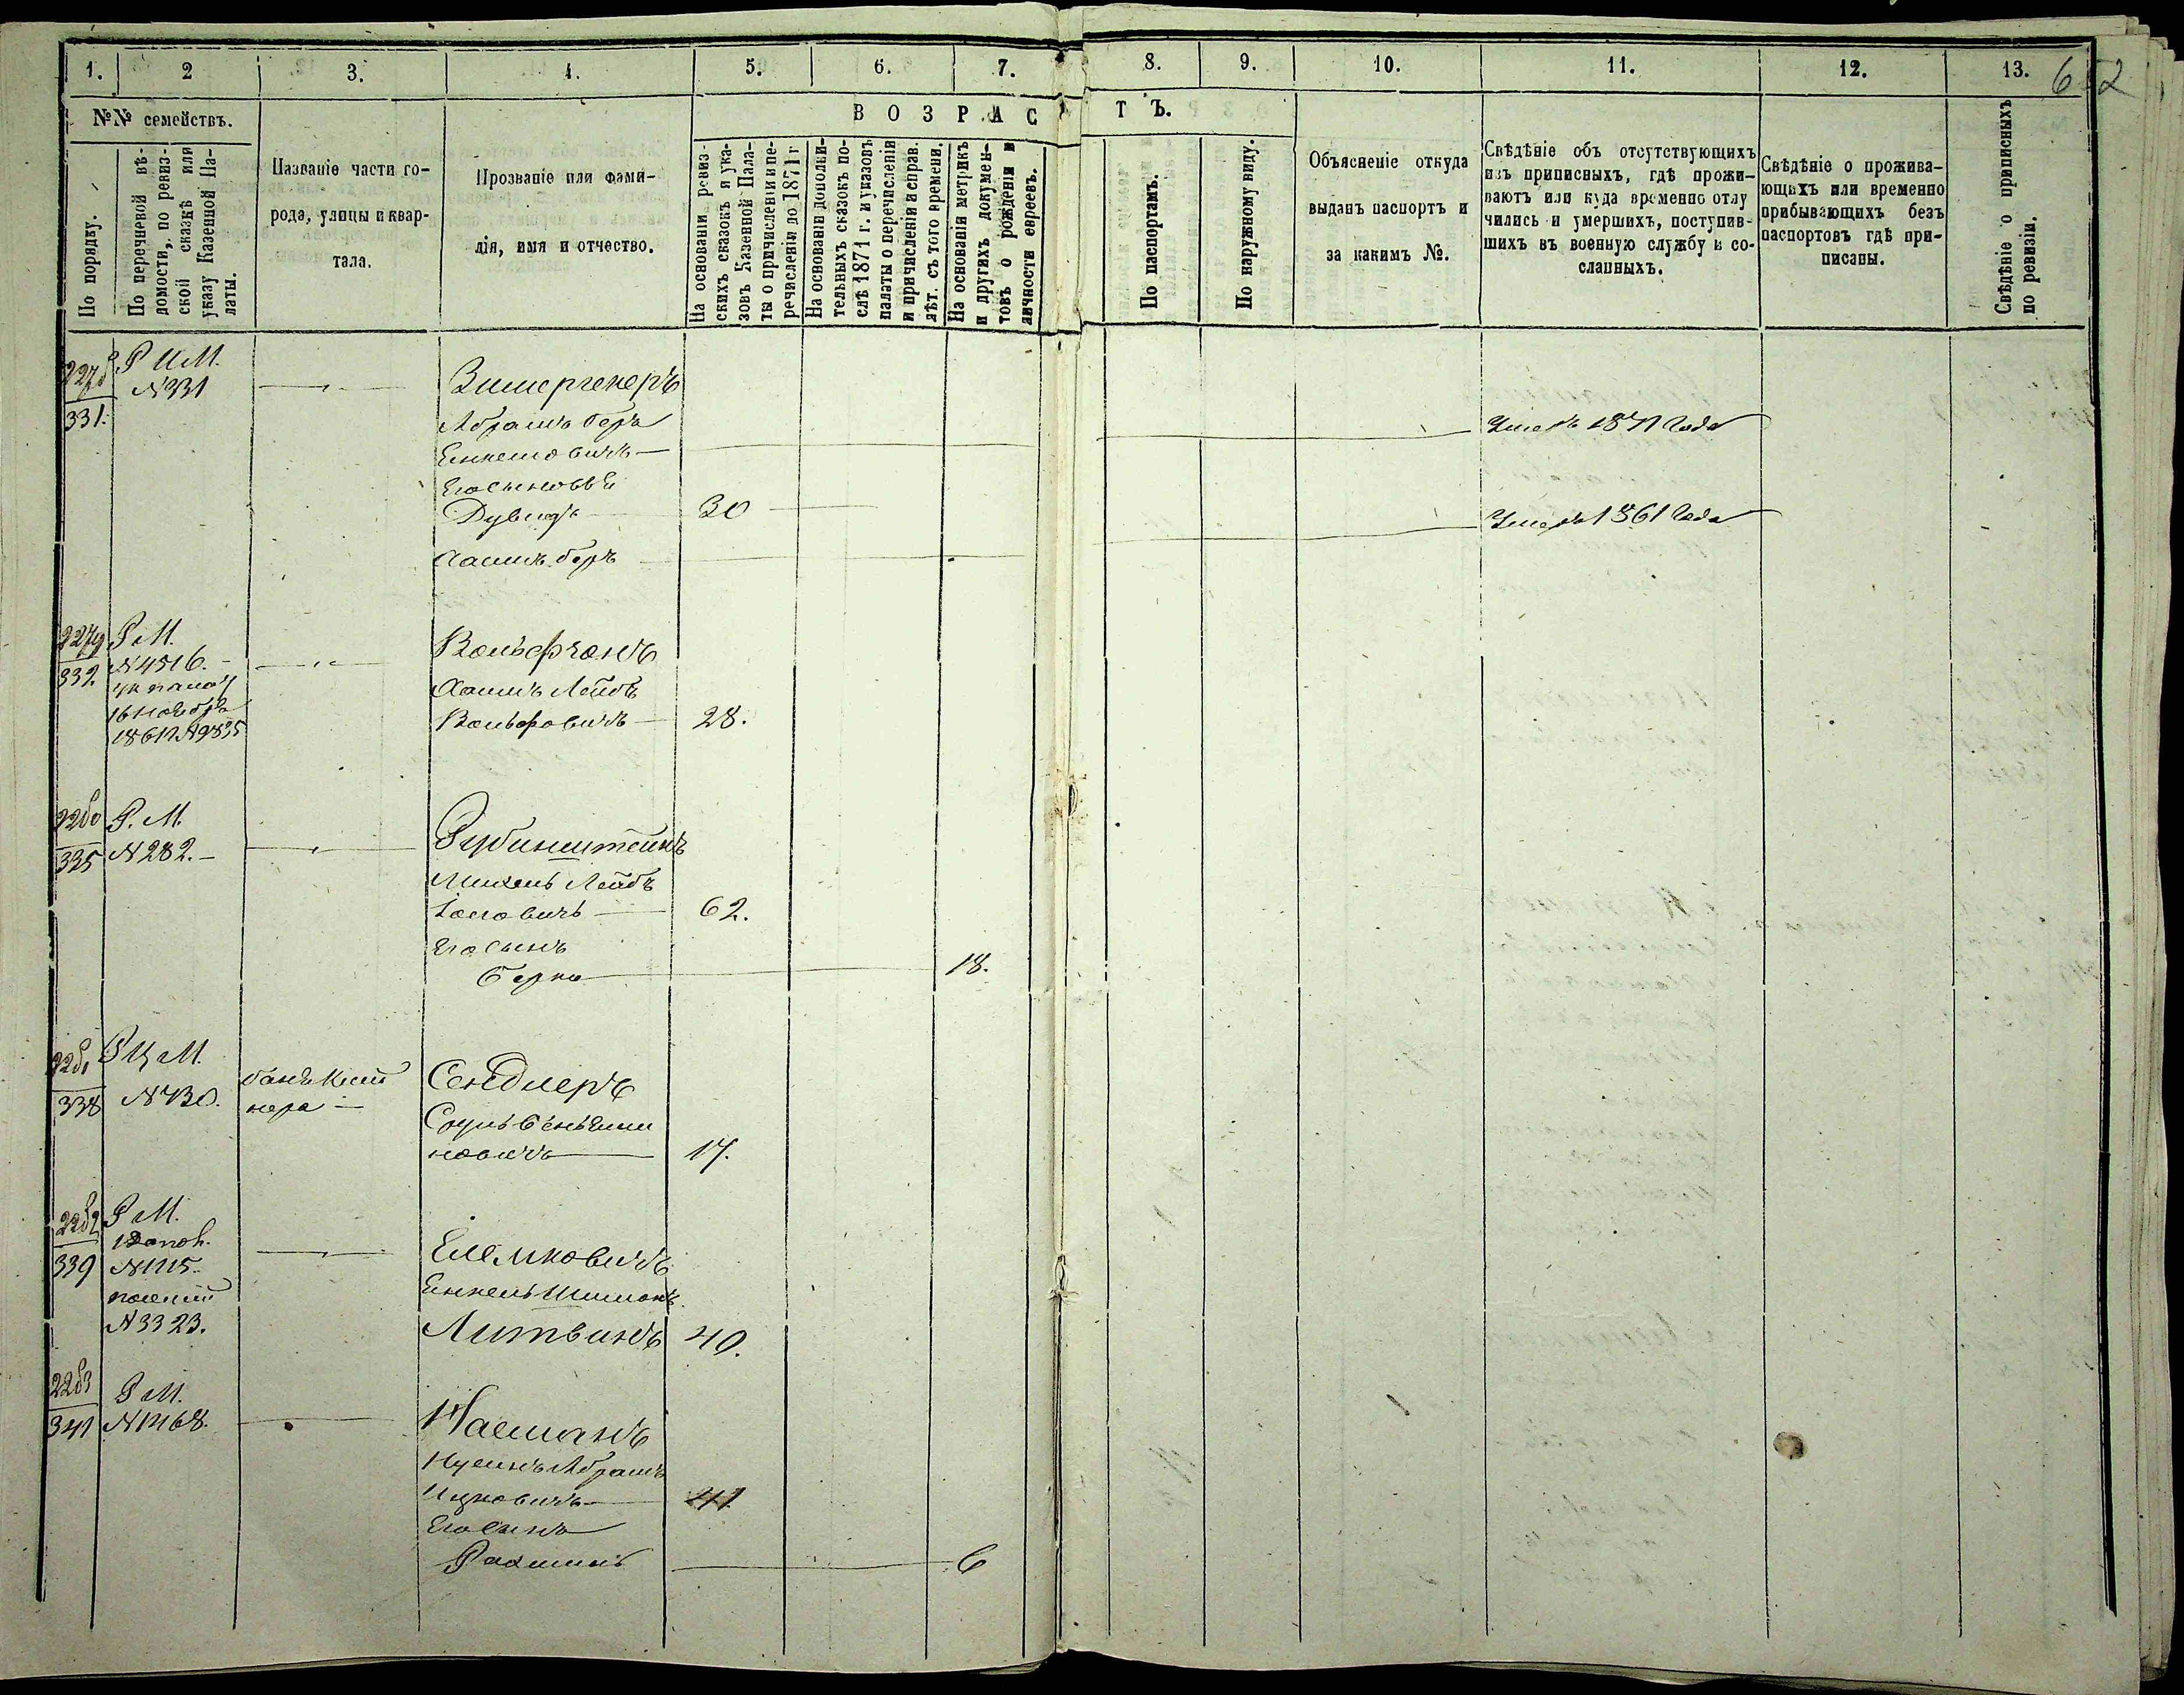 1. 2 3. 4. 5. 6. 7. 8. 9. 10. 11. 12. 13. 652
№№ семействъ.
По порядку.
По перечневой вѣ-
домости, по ревиз-
ской сказкѣ или
указу Казенной Па-
латы.
Названіе части го-
рода, улицы и квар-
тала.
Прозваніе или фами-
лія, имя и отчество.
ВОЗРАСТЪ.
На основаніи ревиз-
скихъ сказокъ и ука-
зовъ Казенной Пала-
ты о причисленіи и пе-
речисленіи до 1871 г
На основаніи дополни-
тельныхъ сказокъ по-
слѣ 1871 г. и указовъ
палаты о перечисленіи
и причисленіи и справ.
лѣт. съ того времени.
На основаніи метрикъ
и другихъ докумен-
товъ о рожденіи и
личности евреевъ.
По паспортамъ.
По наружному виду.
Объясненіе откуда
выданъ паспортъ и
за какимъ №.
Свѣдѣніе объ отсутствующихъ
изъ приписныхъ, гдѣ прожи-
ваютъ или куда временно отлу
чились и умершихъ, поступив-
шихъ въ военную службу и со-
сланныхъ.
Свѣдѣніе о прожива-
ющихъ или временно
прибывающихъ безъ
паспортовъ гдѣ при-
писаны.
Свѣдѣніе о приписныхъ
по ревизіи.
2278 Р И М.
331. N 331
Абрамъ Беръ Умеръ 1871 года
Его сыновья
Дувидъ 30 Умеръ 1861 года
Хаимъ беръ
2279 Р М.
332 N 4516.
Вольфзонъ
16 Ноября
Хаимъ Лейбъ
Вольфовичъ 28.
2280 Р. М.
335 N 282.
Рубинштейнъ
Михель Лейбъ
Іосіовичъ 62.
Его сынъ
Берко 18.
2281 Р Ц М.
338 N 730.
нера
Сендлеръ
новичъ 17.
2282 Р М.
339 N 1115.
N 3323.
Енкель Шимонъ
Литвинъ 40.
2283 Р М.
341 N 1468.
Нусинъ Абрамъ
Ицковичъ 41
Его сынъ
Рахмиль 6